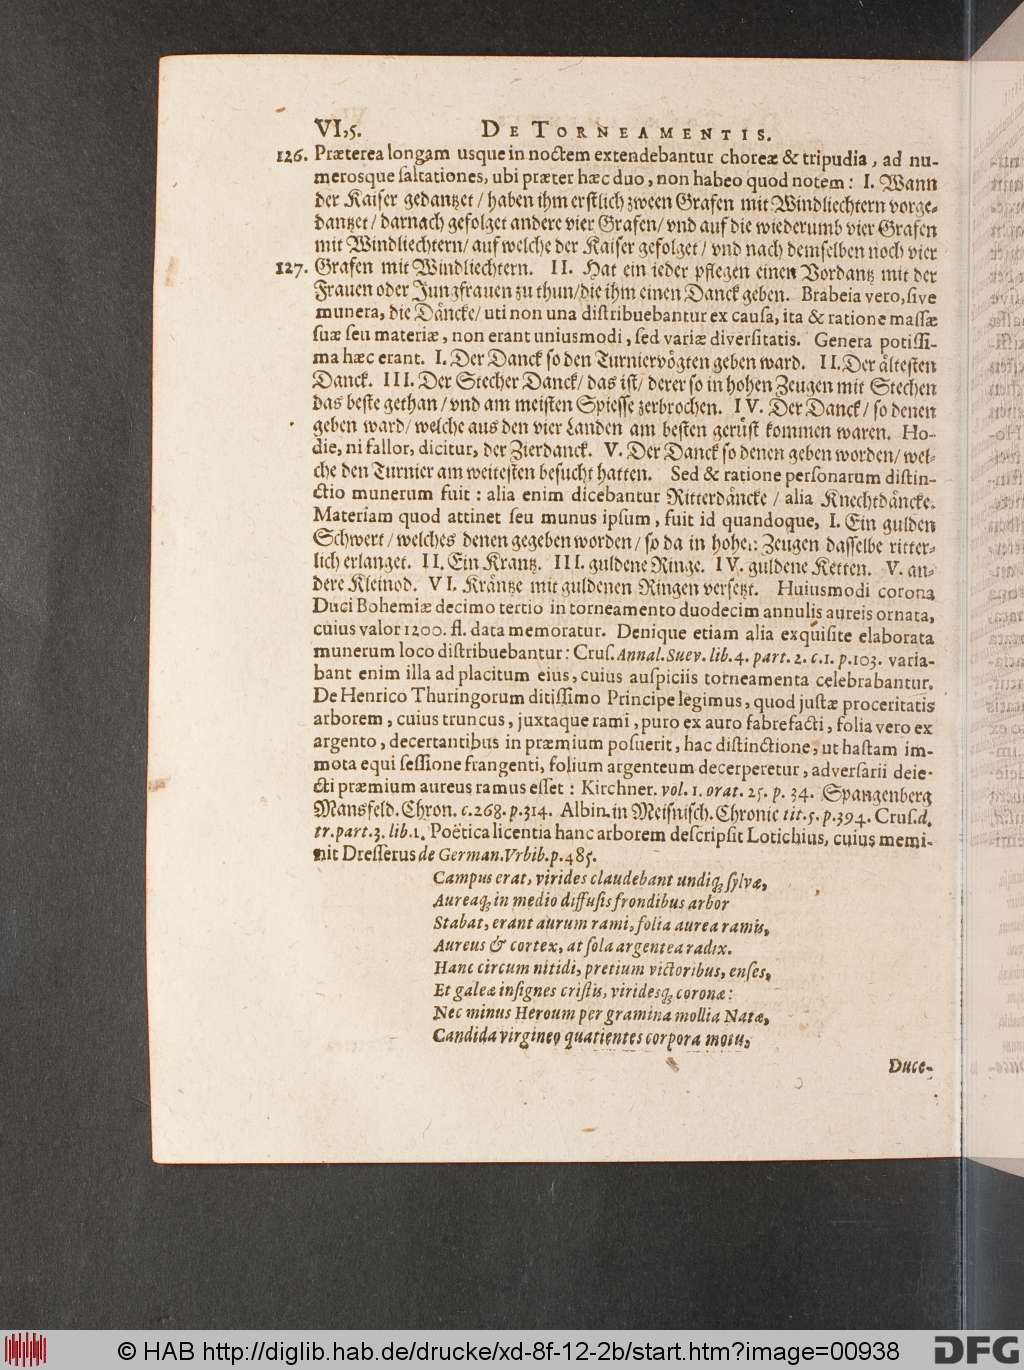 VI,5. DE TORNEAMENTIS.
126. Præterea longam usque in noctem extendebantur choreæ & tripudia, ad nu-
merosque saltationes, ubi præter hæc duo, non habeo quod notem: I. Wann
der Kaiser gedantzet / haben ihm erstlich zween Grafen mit Windliechtern vorge-
dantzet / darnach gefolget andere vier Grafen / vnd auf die wiederumb vier Grafen
mit Windliechtern / auf welche der Kaiser gefolget / vnd nach demselben noch vier
127. Grafen mit Windliechtern. II. Hat ein ieder pflegen einen Vordantz mit der
Frauen oder Jungfrauen zu thun / die ihm einen Danck geben. Brabeia vero, sive
munera, die Däncke / uti non una distribuebantur ex causa, ita & ratione massæ
suæ seu materiæ, non erant uniusmodi, sed variæ diversitatis. Genera potissi-
ma hæc erant. I. Der Danck so den Turniervögten geben ward. II. Der ältesten
Danck. III. Der Stecher Danck / das ist / derer so in hohen Zeugen mit Stechen
das beste gethan / vnd am meisten Spiesse zerbrochen. IV. Der Danck / so denen
geben ward / welche aus den vier Landen am besten gerüst kommen waren. Ho-
die, ni fallor, dicitur, der Zierdanck. V. Der Danck so denen geben worden / wel-
che den Turnier am weitesten besucht hatten. Sed & ratione personarum distin-
ctio munerum fuit: alia enim dicebantur Ritterdäncke / alia Knechtdäncke.
Materiam quod attinet seu munus ipsum, fuit id quandoque, I. Ein gulden
Schwert / welches denen gegeben worden / so da in hohen Zeugen dasselbe ritter-
lich erlanget. II. Ein Krantz. III. guldene Ringe. IV. guldene Ketten. V. an-
dere Kleinod. VI. Kräntze mit guldenen Ringen versetzt. Huiusmodi corona
Duci Bohemiæ decimo tertio in torneamento duodecim annulis aureis ornata,
cuius valor 1200. fl. data memoratur. Denique etiam alia exquisite elaborata
munerum loco distribuebantur: Crus. Annal. Suev. lib. 4. part. 2. c. 1. p. 103. varia-
bant enim illa ad placitum eius, cuius auspiciis torneamenta celebrabantur.
De Henrico Thuringorum ditissimo Principe legimus, quod justæ proceritatis
arborem, cuius truncus, juxtaque rami, puro ex auro fabrefacti, folia vero ex
argento, decertantibus in præmium posuerit, hac distinctione, ut hastam im-
mota equi sessione frangenti, folium argenteum decerperetur, adversarii deie-
cti præmium aureus ramus esset: Kirchner. vol. 1. orat. 25. p. 34. Spangenberg
Mansfeld. Chron. c. 268. p. 314. Albin. in Meisnisch. Chronic tit. 5. p. 394. Crus. d.
tr. part. 3. lib. 1. Poëtica licentia hanc arborem descripsit Lotichius, cuius memi-
nit Dresserus de German. Vrbib. p. 485.
Campus erat, virides claudebant undiq; sylvæ,
Aureaq; in medio diffusis frondibus arbor
Stabat, erant aurum rami, folia aurea ramis,
Aureus & cortex, at sola argentea radix.
Hanc circum nitidi, pretium victoribus, enses,
Et galeæ insignes cristis, viridesq; coronæ:
Nec minus Heroum per gramina mollia Natæ,
Candida virgineo quatientes corpora motu,
Duce-
© HAB http://diglib.hab.de/drucke/xd-8f-12-2b/start.htm?image=00938
DFG